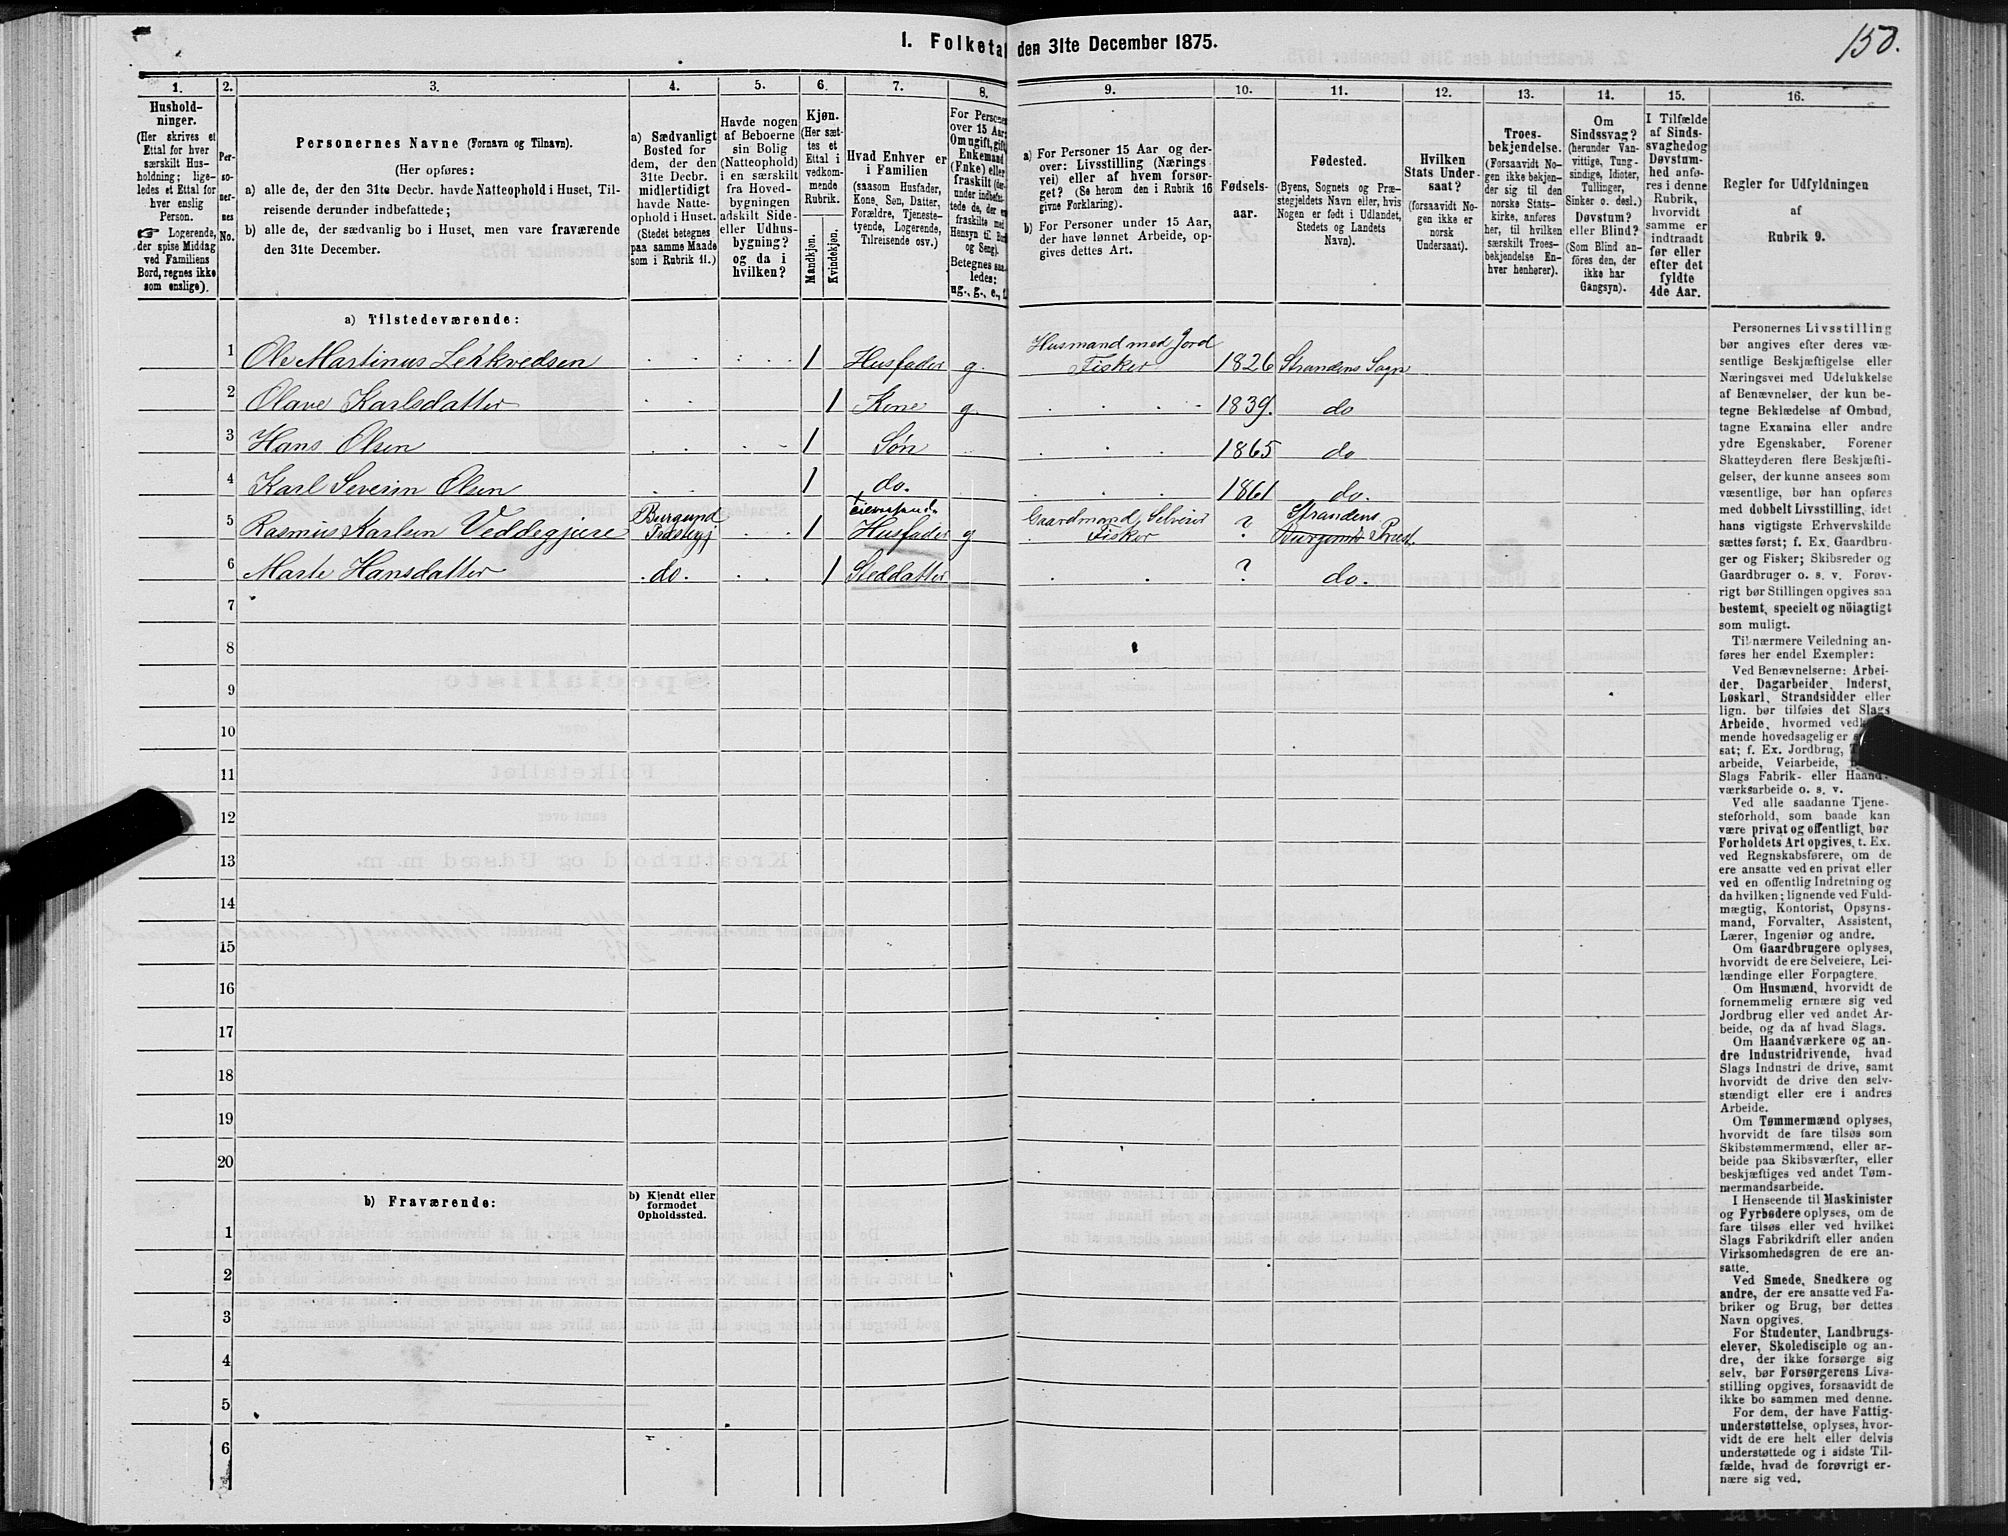 I. Folketal den 31te December 1875.
150.
1.
2.
3.
4.
5.
6.
7.
8.
9.
10.
11.
12.
13.
14.
15.
16.
Hushold-
ninger.
(Her skrives et
Ettal for hver
særskilt Hus-
holdning; lige-
ledes et Ettal for
hver enslig
Person.
☞ Logerende,
der spise Middag
ved Familiens
Bord, regnes ikke
som enslige).
Per-
so-
ner-
nes
No.
Personernes Navne (Fornavn og Tilnavn).
(Her opføres:
a) alle de, der den 31te Decbr. havde Natteophold i Huset, Til-
reisende derunder indbefattede;
b) alle de, der sædvanlig bo i Huset, men vare fraværende
den 31te December.
a) Sædvanligt
Bosted for
dem, der den
31te Decbr.
midlertidigt
havde Natte-
ophold i Huset.
(Stedet betegnes
paa samme Maade
som i Rubrik 11.)
Havde nogen
af Beboerne
sin Bolig
(Natteophold)
i en særskilt
fra Hoved-
bygningen
adskilt Side-
eller Udhus-
bygning?
og da i
hvilken?
Kjøn.
(Her sæt-
tes et
Ettal i
vedkom-
mende
Rubrik.
Mandkjøn.
Kvindekjøn.
Hvad Enhver er
i Familien
(saasom Husfader,
Kone, Søn, Datter,
Forældre, Tjeneste-
tyende, Logerende,
Tilreisende osv.)
For Personer
over 15 Aar:
Om ugift, gift,
Enkemand
(Enke) eller
fraskilt
Hensyn til Bord
og Seng).
Betegnes saa-
ledes:
ug., g., e., f.
a) For Personer 15 Aar og der-
over: Livsstilling (Nærings-
vei) eller af hvem forsør-
get? (Se herom den i Rubrik 16
givne Forklaring).
b) For Personer under 15 Aar,
der have lønnet Arbeide, op-
gives dettes Art.
Fødsels-
aar.
Fødested.
(Byens, Sognets og Præ-
stegjeldets Navn eller, hvis
Nogen er født i Udlandet,
Stedets og Landets
Navn).
Hvilken
Stats Under-
saat?
(forsaavidt No-
gen ikke er
norsk
Undersaat).
Troes-
bekjendelse.
(Forsaavidt No-
gen ikke bekjen-
der sig til den
norske Stats-
kirke, anføres
her, til hvilken
særskilt Troes-
bekjendelse En-
hver henhører).
Om
Sindssvag?
(herunder Van-
vittige, Tung-
sindige, Idioter,
Tullinger,
Sinker o. desl.)
Døvstum?
eller Blind?
(Som Blind an-
føres den, der
ikke har
Gangsyn).
I Tilfælde
af Sinds-
svaghed og
Døvstum-
hed anfø-
res i denne
Rubrik,
hvorvidt
samme er
indtraadt
før eller
efter det
fyldte
4de Aar.
Regler for Udfyldningen
af
Rubrik 9.
a) Tilstedeværende:
1 Ole Martinus Lekkvedsen 1 Husfader g. Husmand med Jord Fisker 1826 Strandens Sogn
2 Olave Karlsdatter 1 Kone g. 1839. do
3 Hans Olsen 1 Søn 1865 do
4 Karl Severin Olsen 1 do. 1861 do.
5 Rasmus Karlsen Veddegjære Borgund Præstegj 1 Husfader g Gaardmand, Selveier Fisker ? Strandens Præst.
6 Marte Hansdatter do. 1 Steddatter ? do.
7
8
9
10
11
12
13
14
15
16
17
18
19
20
b) Fraværende:
b) Kjendt eller
formodet
Opholdssted.
1
2
3
4
5
6
Personernes Livsstilling
bør angives efter deres væ-
sentlige Beskjæftigelse eller
Næringsvei med Udelukkelse
af Benævnelser, der kun be-
tegne Beklædelse af Ombud,
tagne Examina eller andre
ydre Egenskaber. Forener
Skatteyderen flere Beskjæfti-
gelser, der kunne ansees som
væsentlige, bør han opføres
med dobbelt Livsstilling, idet
hans vigtigste Erhvervskilde
sættes først; f. Ex. Gaardbru-
ger og Fisker; Skibsreder og
Gaardbruger o. s. v. Forøv-
rigt bør Stillingen opgives saa
bestemt, specielt og nöiagtigt
som muligt.
Til nærmere Veiledning an-
føres her endel Exempler:
Ved Benævnelserne: Arbei-
der, Dagarbeider, Inderst,
Løskarl, Strandsidder eller
lign. bør tilføies det Slags
Arbeide, hvormed vedkom-
mende hovedsagelig er
sat; f. Ex. Jordbrug,
arbeide, Veiarbeide,
Slags Fabrik- eller Haand-
værksarbeide o. s. v.
Ved alle saadanne Tjene-
steforhold, som baade kan
være privat og offentligt, bør
Forholdets Art opgives, f. Ex.
ved Regnskabsførere, om de
ere ansatte ved en privat eller
ved en offentlig Indretning og
da hvilken; lignende ved Fuld-
mægtig, Kontorist, Opsyns-
mand, Forvalter, Assistent,
Lærer, Ingeniør og andre.
Om Gaardbrugere oplyses,
hvorvidt de ere Selveiere, Lei-
lændinge eller Forpagtere.
Om Husmænd, hvorvidt de
fornemmelig ernære sig ved
Jordbrug eller ved andet Ar-
beide, og da af hvad Slags.
Om Haandværkere og an-
dre Industridrivende, hvad
Slags Industri de drive, samt
hvorvidt de drive den selv-
stændigt eller ere i andres
Arbeide.
Om Tømmermænd oplyses,
hvorvidt de fare tilsøs som
Skibstømmermænd, eller ar-
beide paa Skibsværfter, eller
beskjæftiges ved andet Tøm-
mermandsarbeide.
I Henseende til Maskinister
og Fyrbødere oplyses, om de
fare tilsøs eller ved hvilket
Slags Fabrikdrift eller anden
Virksomhedsgren de ere an-
satte.
Ved Smede, Snedkere og
andre, der ere ansatte ved Fa-
briker og Brug, bør dettes
Navn opgives.
For Studenter, Landbrugs-
elever, Skoledisciple og an-
dre, der ikke forsørge sig
selv, bør Forsørgerens Livs-
stilling opgives, forsaavidt de
ikke bo sammen med denne.
For dem, der have Fattig-
understøttelse, oplyses, hvor-
vidt de ere helt eller delvis
understøttede og i sidste Til-
fælde, hvad de forøvrigt er-
nære sig ved.